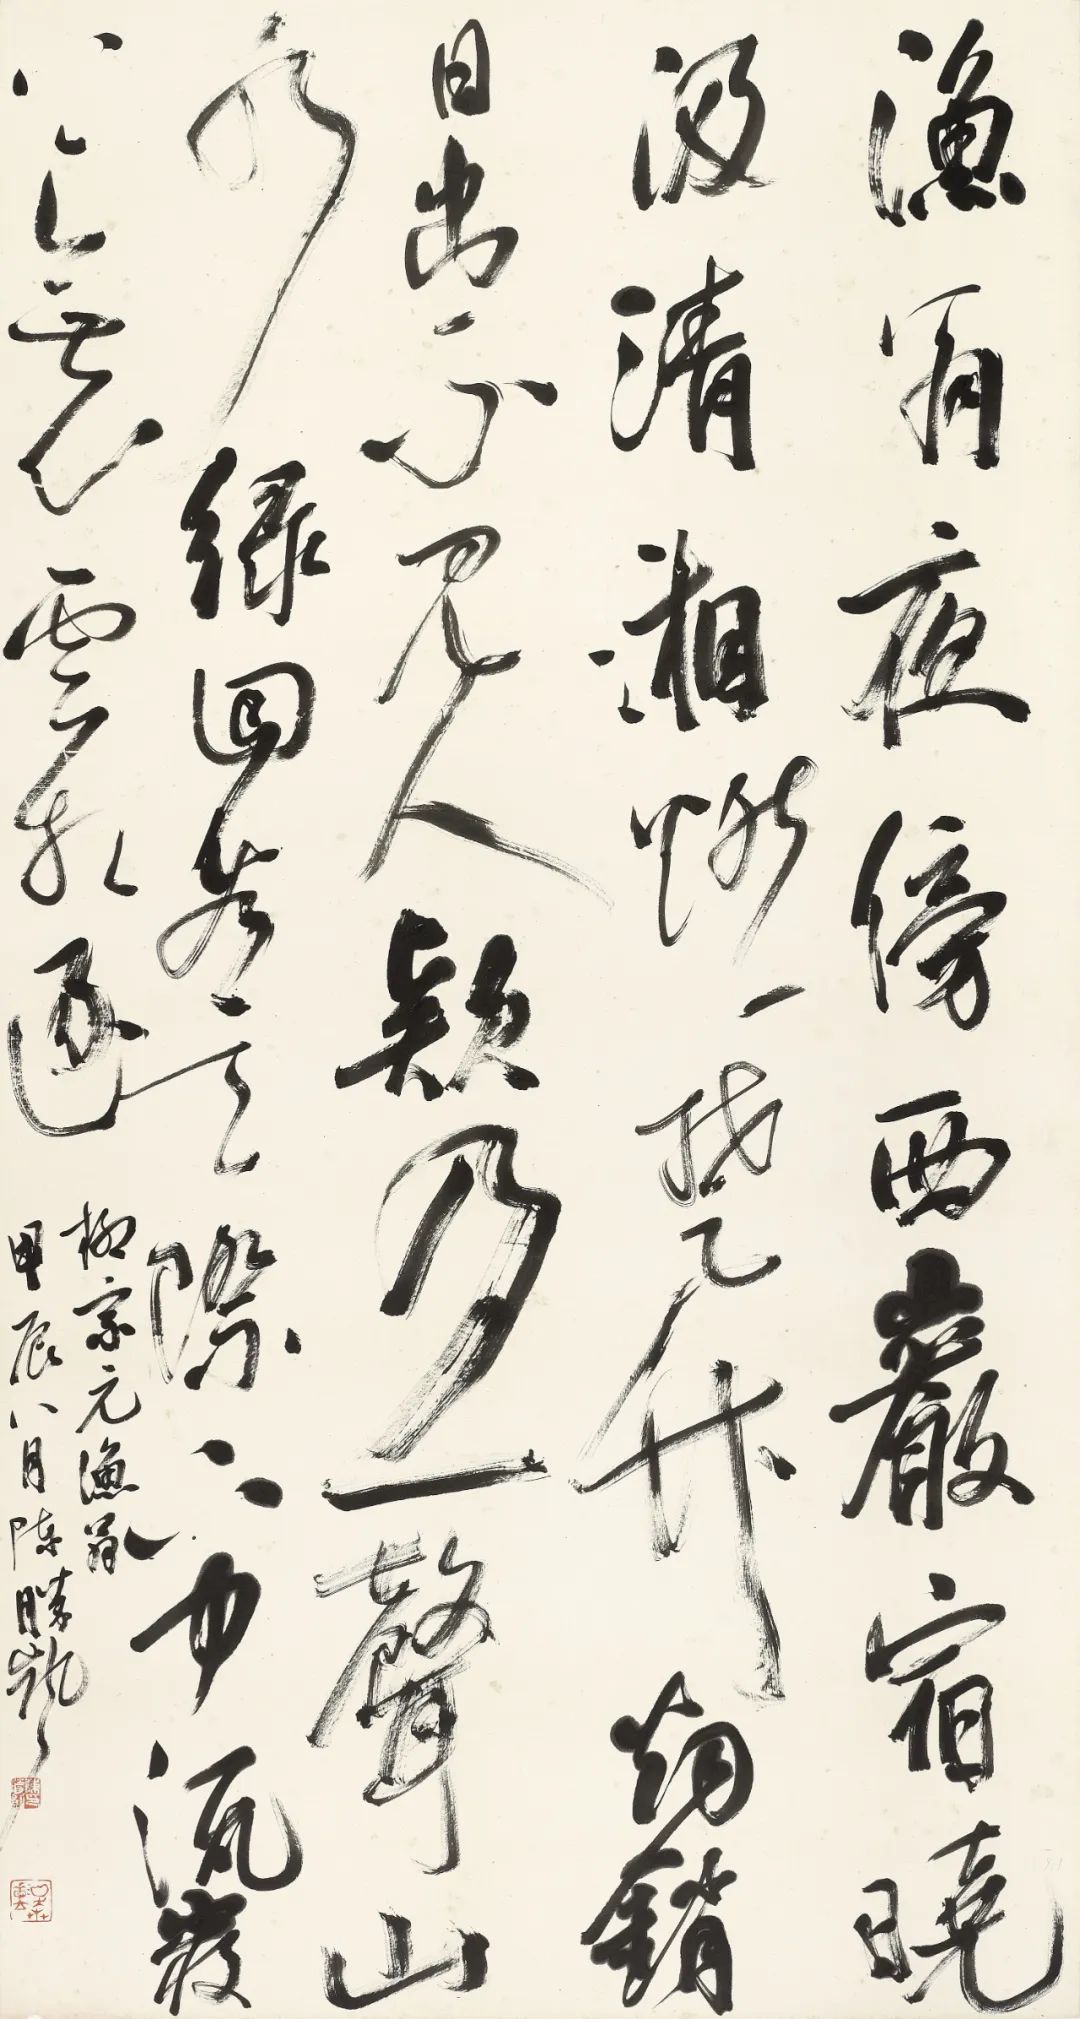 漁翁夜傍西巖宿曉
汲清湘燃楚竹烟銷
日出不見人欸乃一聲山
水緑回看天際下中流巖
上無心雲相逐
柳宗元漁翁
甲辰八月陳勝凱